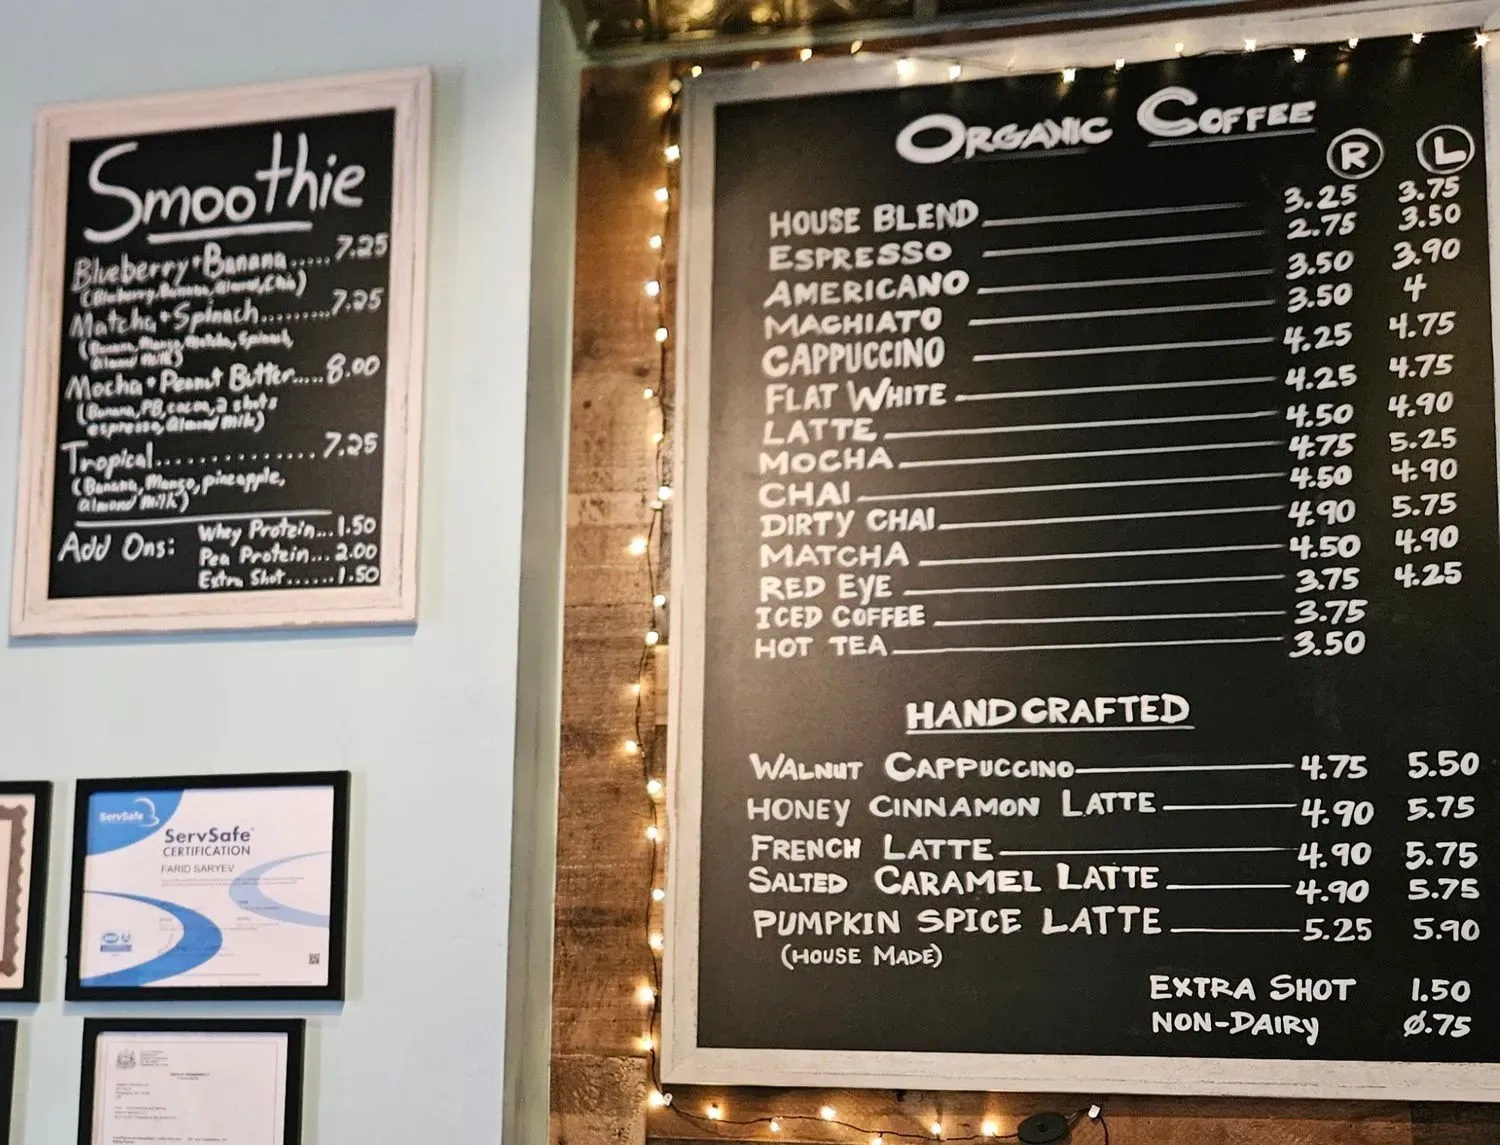 Smoothie
Blueberry + Banana.....7.25
(Blueberry, Banana, Almond, Chia)
Matcha + Spinach.........7.25
(Banana, Mango, Matcha, Spinach,
Almond Milk)
Mocha + Peanut Butter.....8.00
(Banana, PB, cocoa, 2 shots
espresso, Almond Milk)
Tropical.............7.25
(Banana, Mango, pineapple,
almond Milk)
Add Ons: Whey Protein...1.50
Pea Protein...2.00
Extra Shot......1.50
ServSafe
ServSafe®
CERTIFICATION
FARID SARYEV
ORGANIC COFFEE
R L
HOUSE BLEND 3.25 3.75
ESPRESSO 2.75 3.50
AMERICANO 3.50 3.90
MACHIATO 3.50 4
CAPPUCCINO 4.25 4.75
FLAT WHITE 4.25 4.75
LATTE 4.50 4.90
MOCHA 4.75 5.25
CHAI 4.50 4.90
DIRTY CHAI 4.90 5.75
MATCHA 4.50 4.90
RED EYE 3.75 4.25
ICED COFFEE 3.75
HOT TEA 3.50
HANDCRAFTED
WALNUT CAPPUCCINO 4.75 5.50
HONEY CINNAMON LATTE 4.90 5.75
FRENCH LATTE 4.90 5.75
SALTED CARAMEL LATTE 4.90 5.75
PUMPKIN SPICE LATTE 5.25 5.90
(HOUSE MADE)
EXTRA SHOT 1.50
NON-DAIRY 0.75